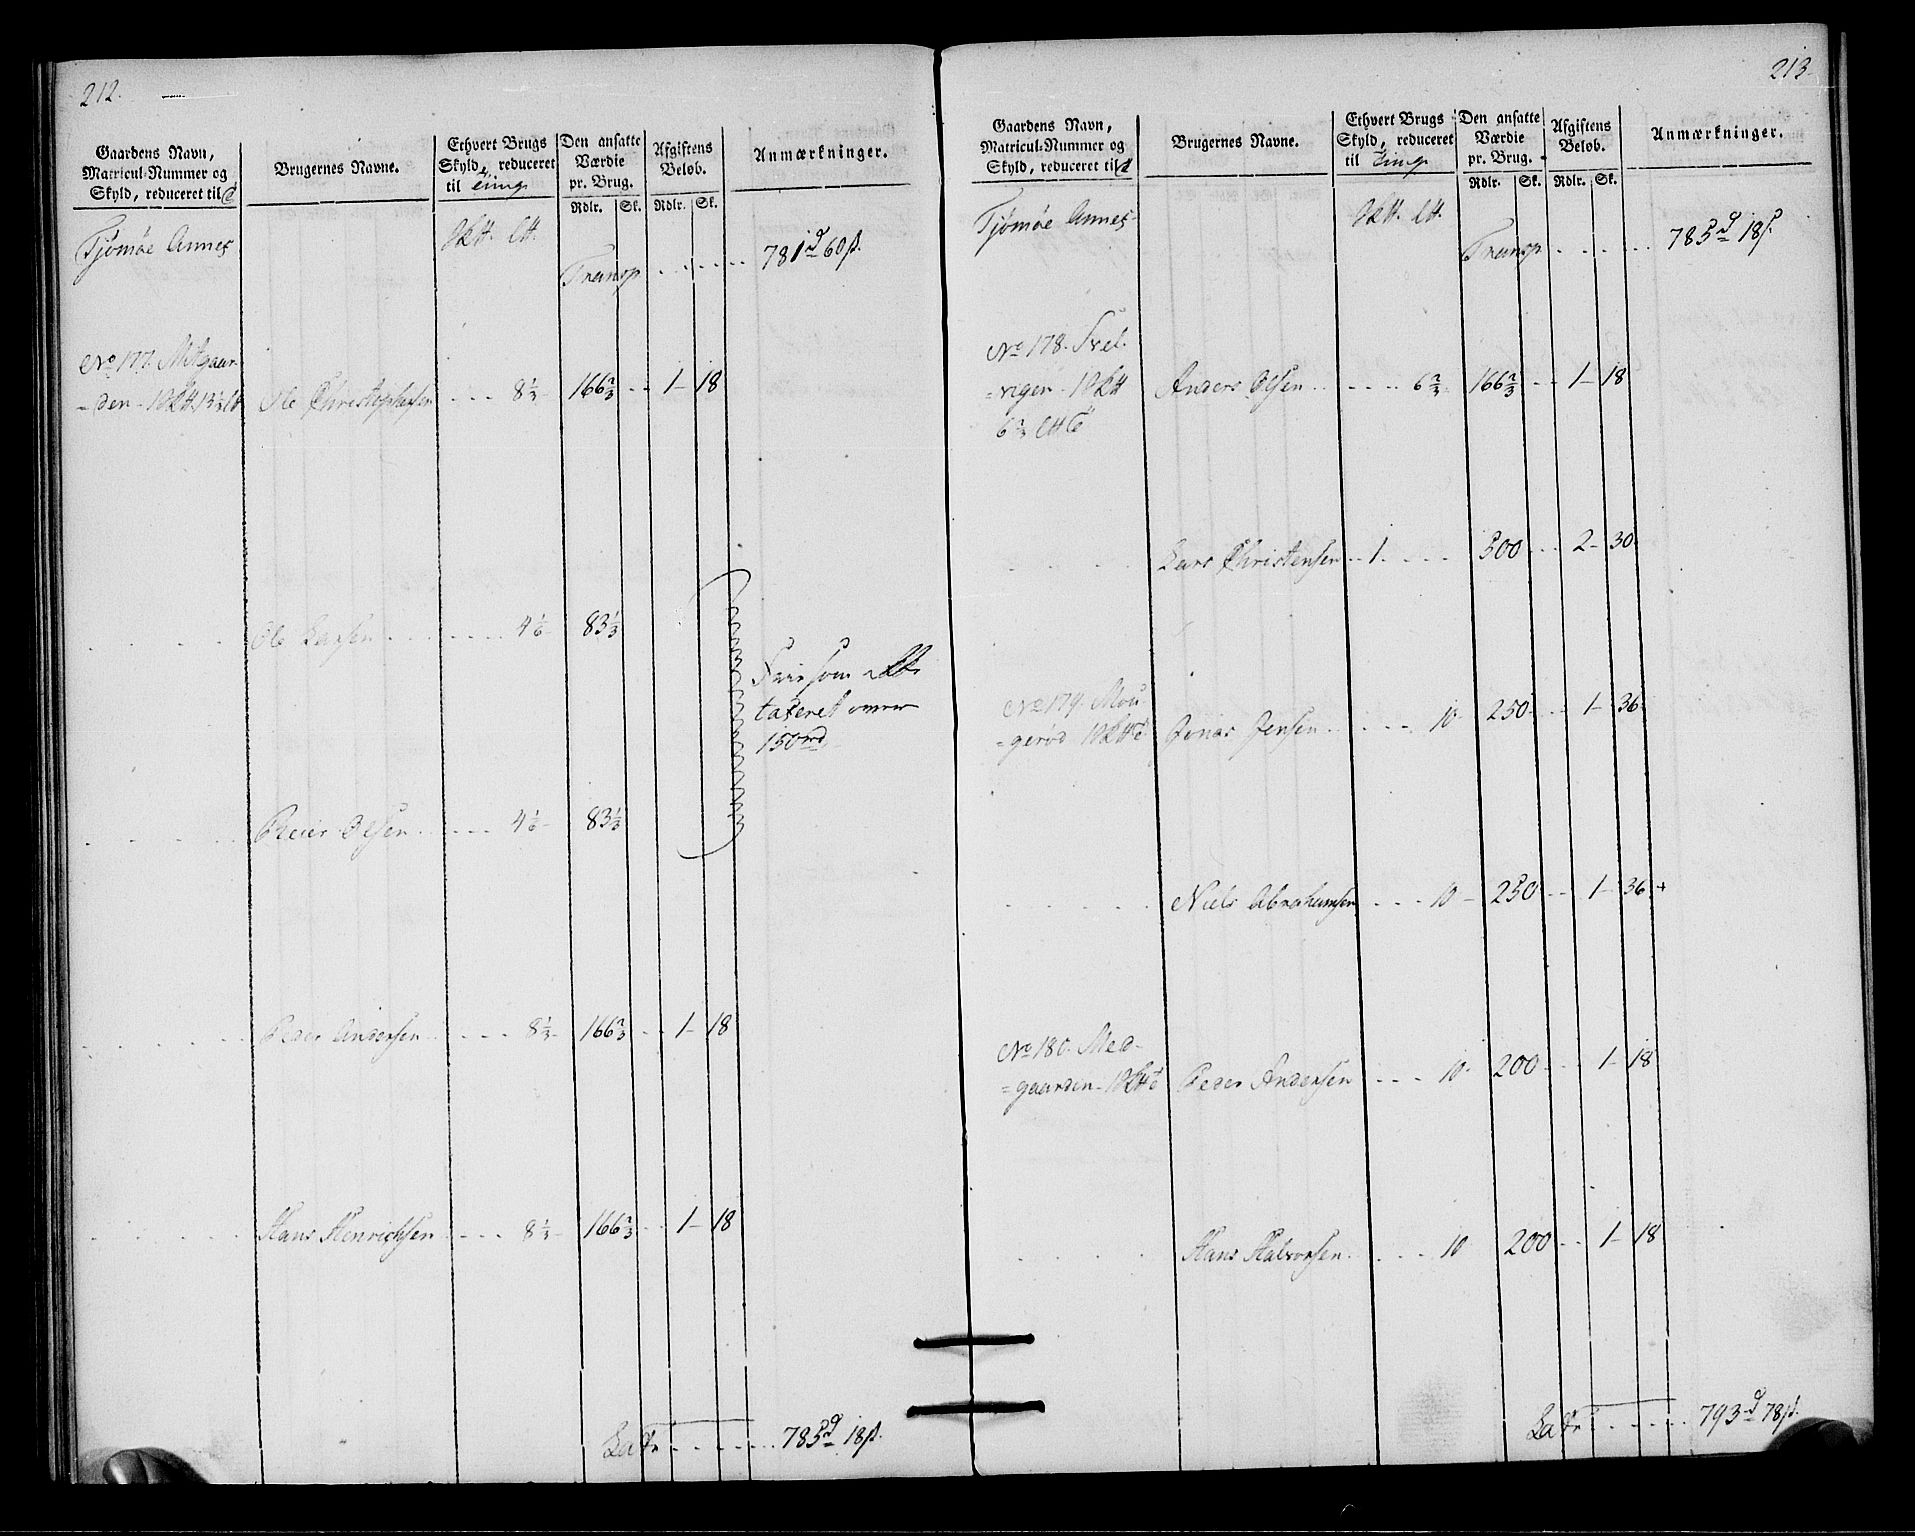 212.
Gaardens Navn,
Matricul-Nummer og
Skyld, reduceret til
Brugernes Navne.
Ethvert Brugs
Skyld, reduceret
til Ting
Den ansatte
Værdie
pr. Brug.
Rdlr. Sk.
Afgiftens
Beløb.
Rdlr. Sk.
Anmærkninger.
Tjømøe Annex
Transp . . . . . 781 d 60 ß.
No 177. Mitgaar-
=den - 1 13⅓ Ole Christophersen . . . 8⅓ 166⅔ . . 1 - 18
Ole Larsen . . . . . . . 4⅙ 83⅓
Fri som
taxeret under
150 rd
Reier Olsen . . . . . 4⅙ - 83⅓
Peder Andersen . . . . 8⅓ - 166⅔ . . 1 - 18
Hans Henrichsen . . . . 8⅓ - 166⅔ . . 1 - 18
Latr . . . . . . . 785 d 18 ß.
213.
Gaardens Navn,
Matricul-Nummer og
Skyld, reduceret til
Brugernes Navne.
Ethvert Brugs
Skyld, reduceret
til Ting
Den ansatte
Værdie
pr. Brug.
Rdlr. Sk.
Afgiftens
Beløb.
Rdlr. Sk.
Anmærkninger.
Tjømøe Annex
Transp . . . . . 785 d 18 ß.
No 178. Svel-
=vigen - 1 Anders Olsen . . . . . . 6⅔ 166⅔ . . 1 - 18
6⅔
Lars Christensen . . 1 . . . . 500 . . 2 - 30
No 179. Mou
=gerød 1 Jonas Jensen . . . . . . 10 - 250 . . 1 - 36
Niels Abrahamsen . . . . 10 - 250 . . 1 - 36 +
No 180. Med-
=gaarden - 1 Peder Andersen . . . 10 - 200 . . 1 - 18
Hans Halvorsen . . . . 10 200 . . 1 - 18
Latr . . . . . 793 d 78 ß.